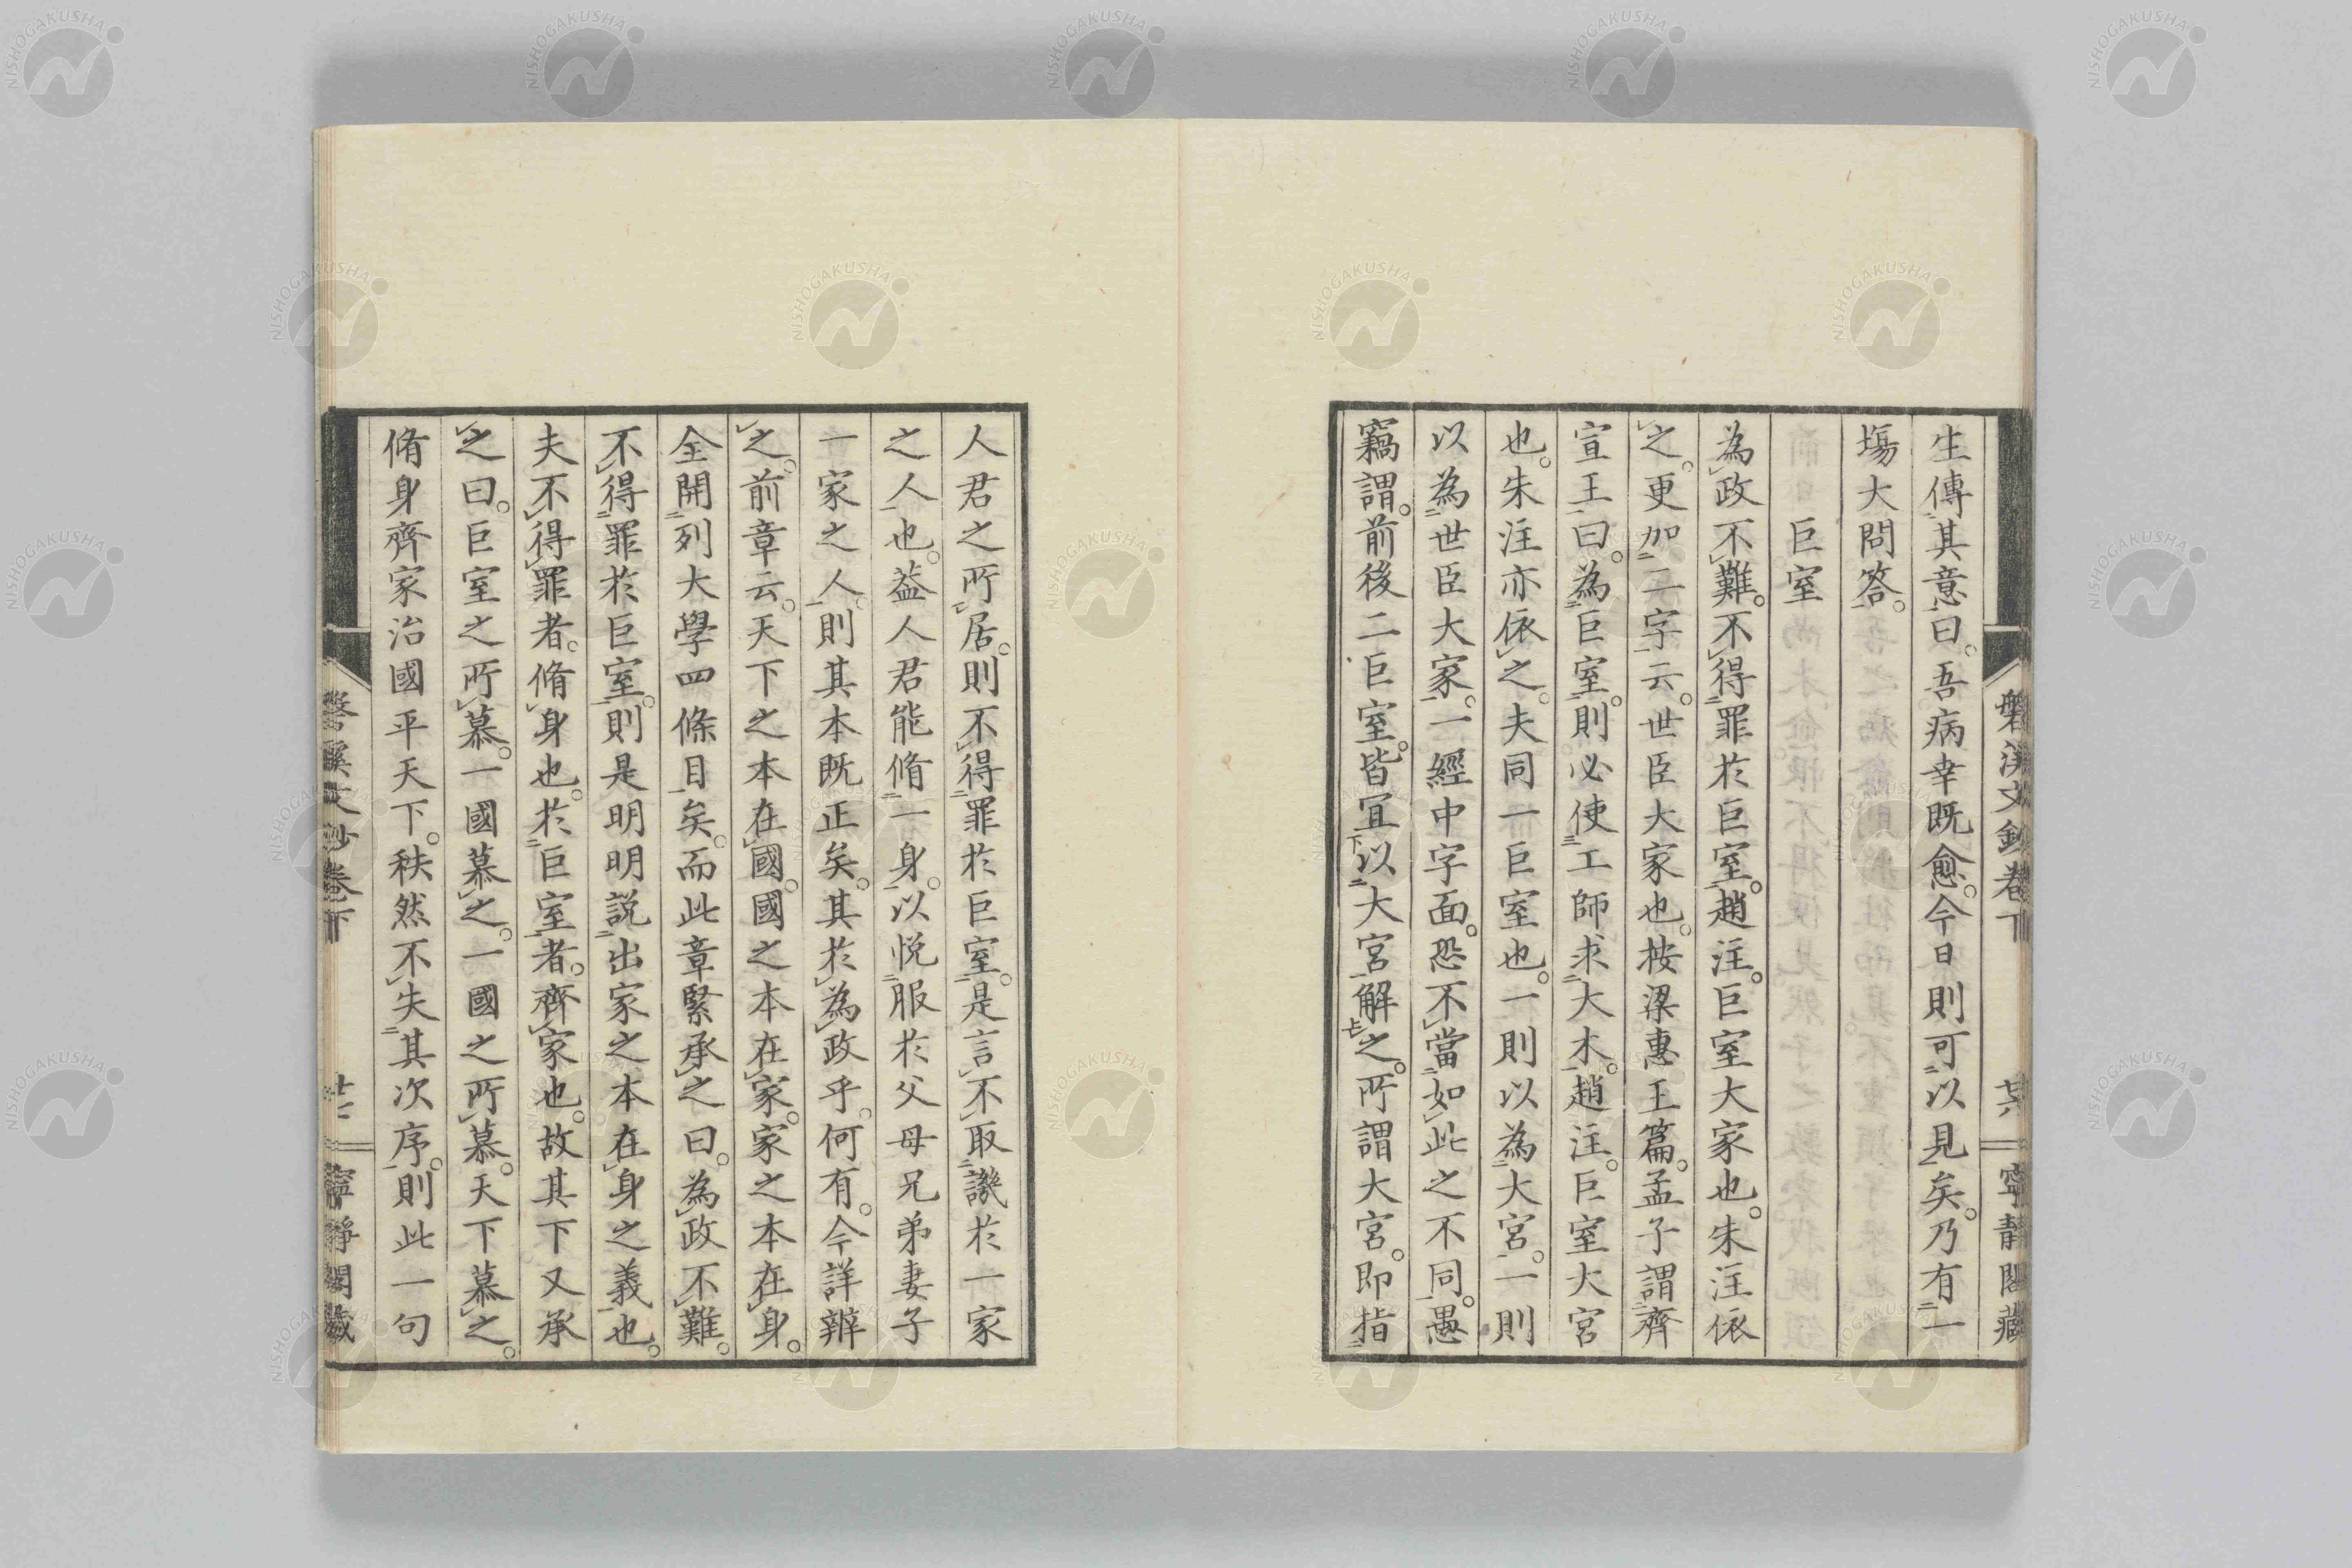 磐溪文鈔卷下 廿六 寧靜閣藏
生傳其意曰。吾病幸既愈。今日則可以見矣。乃有一
塲大問答。
巨室
為政不難。不得罪於巨室。趙注。巨室大家也。朱注依
之。更加二字云。世臣大家也。按梁惠王篇。孟子謂齊
宣王曰。為巨室。則必使工師求大木。趙注。巨室大宮
也。朱注亦依之。夫同一巨室也。一則以為大宮。一則
以為世臣大家。一經中字面。恐不當如此之不同。愚
竊謂。前後二巨室。皆宜以大宮解之。所謂大宮。即指
人君之所居。則不得罪於巨室。是言不取譏於一家
之人也。葢人君能脩一身。以悅服於父母兄弟妻子
一家之人。則其本既正矣。其於為政乎。何有。今詳辨
之。前章云。天下之本在國。國之本在家。家之本在身。
全開列大學四條目矣。而此章緊承之曰。為政不難。
不得罪於巨室。則是明明説出家之本在身之義也。
夫不得罪者。脩身也。於巨室者。齊家也。故其下又承
之曰。巨室之所慕。一國慕之。一國之所慕。天下慕之。
脩身齊家治國平天下。秩然不失其次序。則此一句
磐溪文鈔卷下 廿七 寧靜閣藏
NISHOGAKUSHA